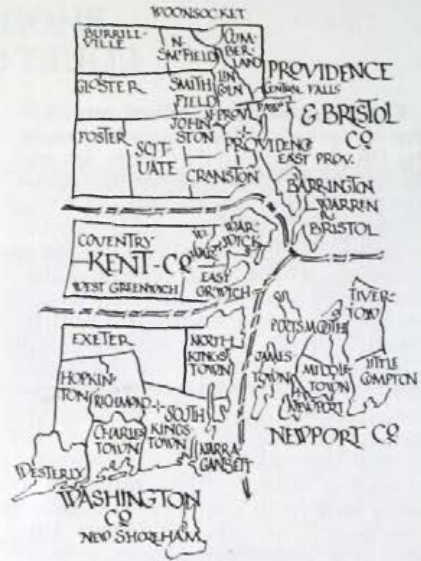 WOONSOCKET
BURRILL-
VILLE
N-
SMFIELD
CUM-
BER-
LAND
GLOSTER
SMITH
FIELD
LIN
COLN
PROVIDENCE
CENTRAL FALLS
& BRISTOL
CO
N-PROV.
PAWT
FOSTER
JOHN
STON
PROVIDENCE
SCIT-
UATE
EAST PROV.
CRANSTON
BARRINGTON
WARREN
BRISTOL
COVENTRY
W.
WAR-
WICK
KENT-CO
WEST GREENWICH
EAST
GR'WICH
EXETER
NORTH
KINGS
TOWN
TIVER-
TOWN
PORTSMOUTH
JAMES
TOWN
MIDDLE
TOWN
LITTLE
COMPTON
NEWPORT
NEWPORT CO
HOPKIN-
TON
RICHMOND
SOUTH
KINGS-
TOWN
CHARLES
TOWN
NARRA
GANSETT
WESTERLY
WASHINGTON
CO
NEW SHOREHAM